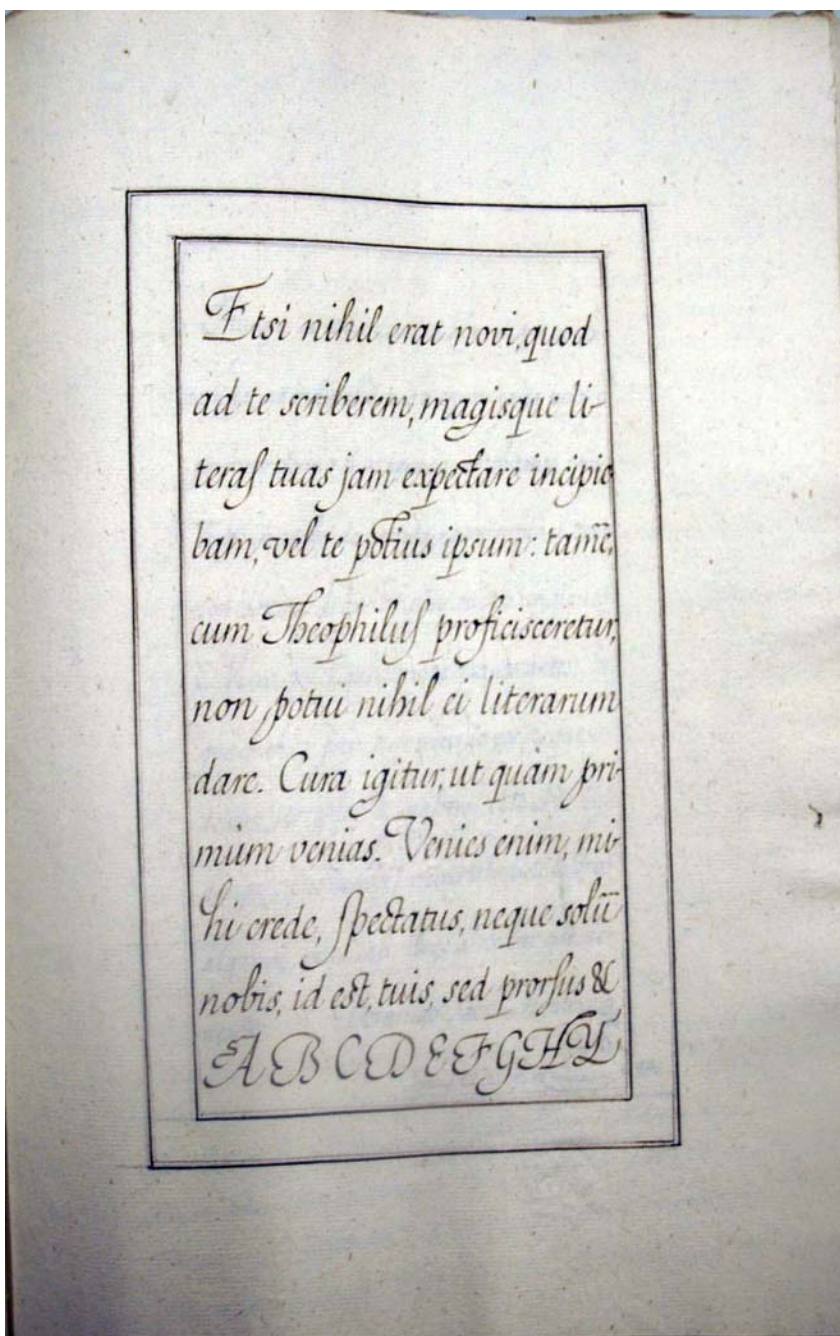 Etsi nihil erat novi, quod
ad te scriberem, magisque li-
teraſ tuas jam expectare incipie
bam, vel te potius ipsum: tamē,
cum Theophiluſ proficisceretur,
non potui nihil ei literarum
dare. Cura igitur, ut quam pri-
mum venias. Venies enim, mi-
hi crede, ſpectatus, neque solū
nobis, id est, tuis, sed prorſus &
A B C D E F G H Y